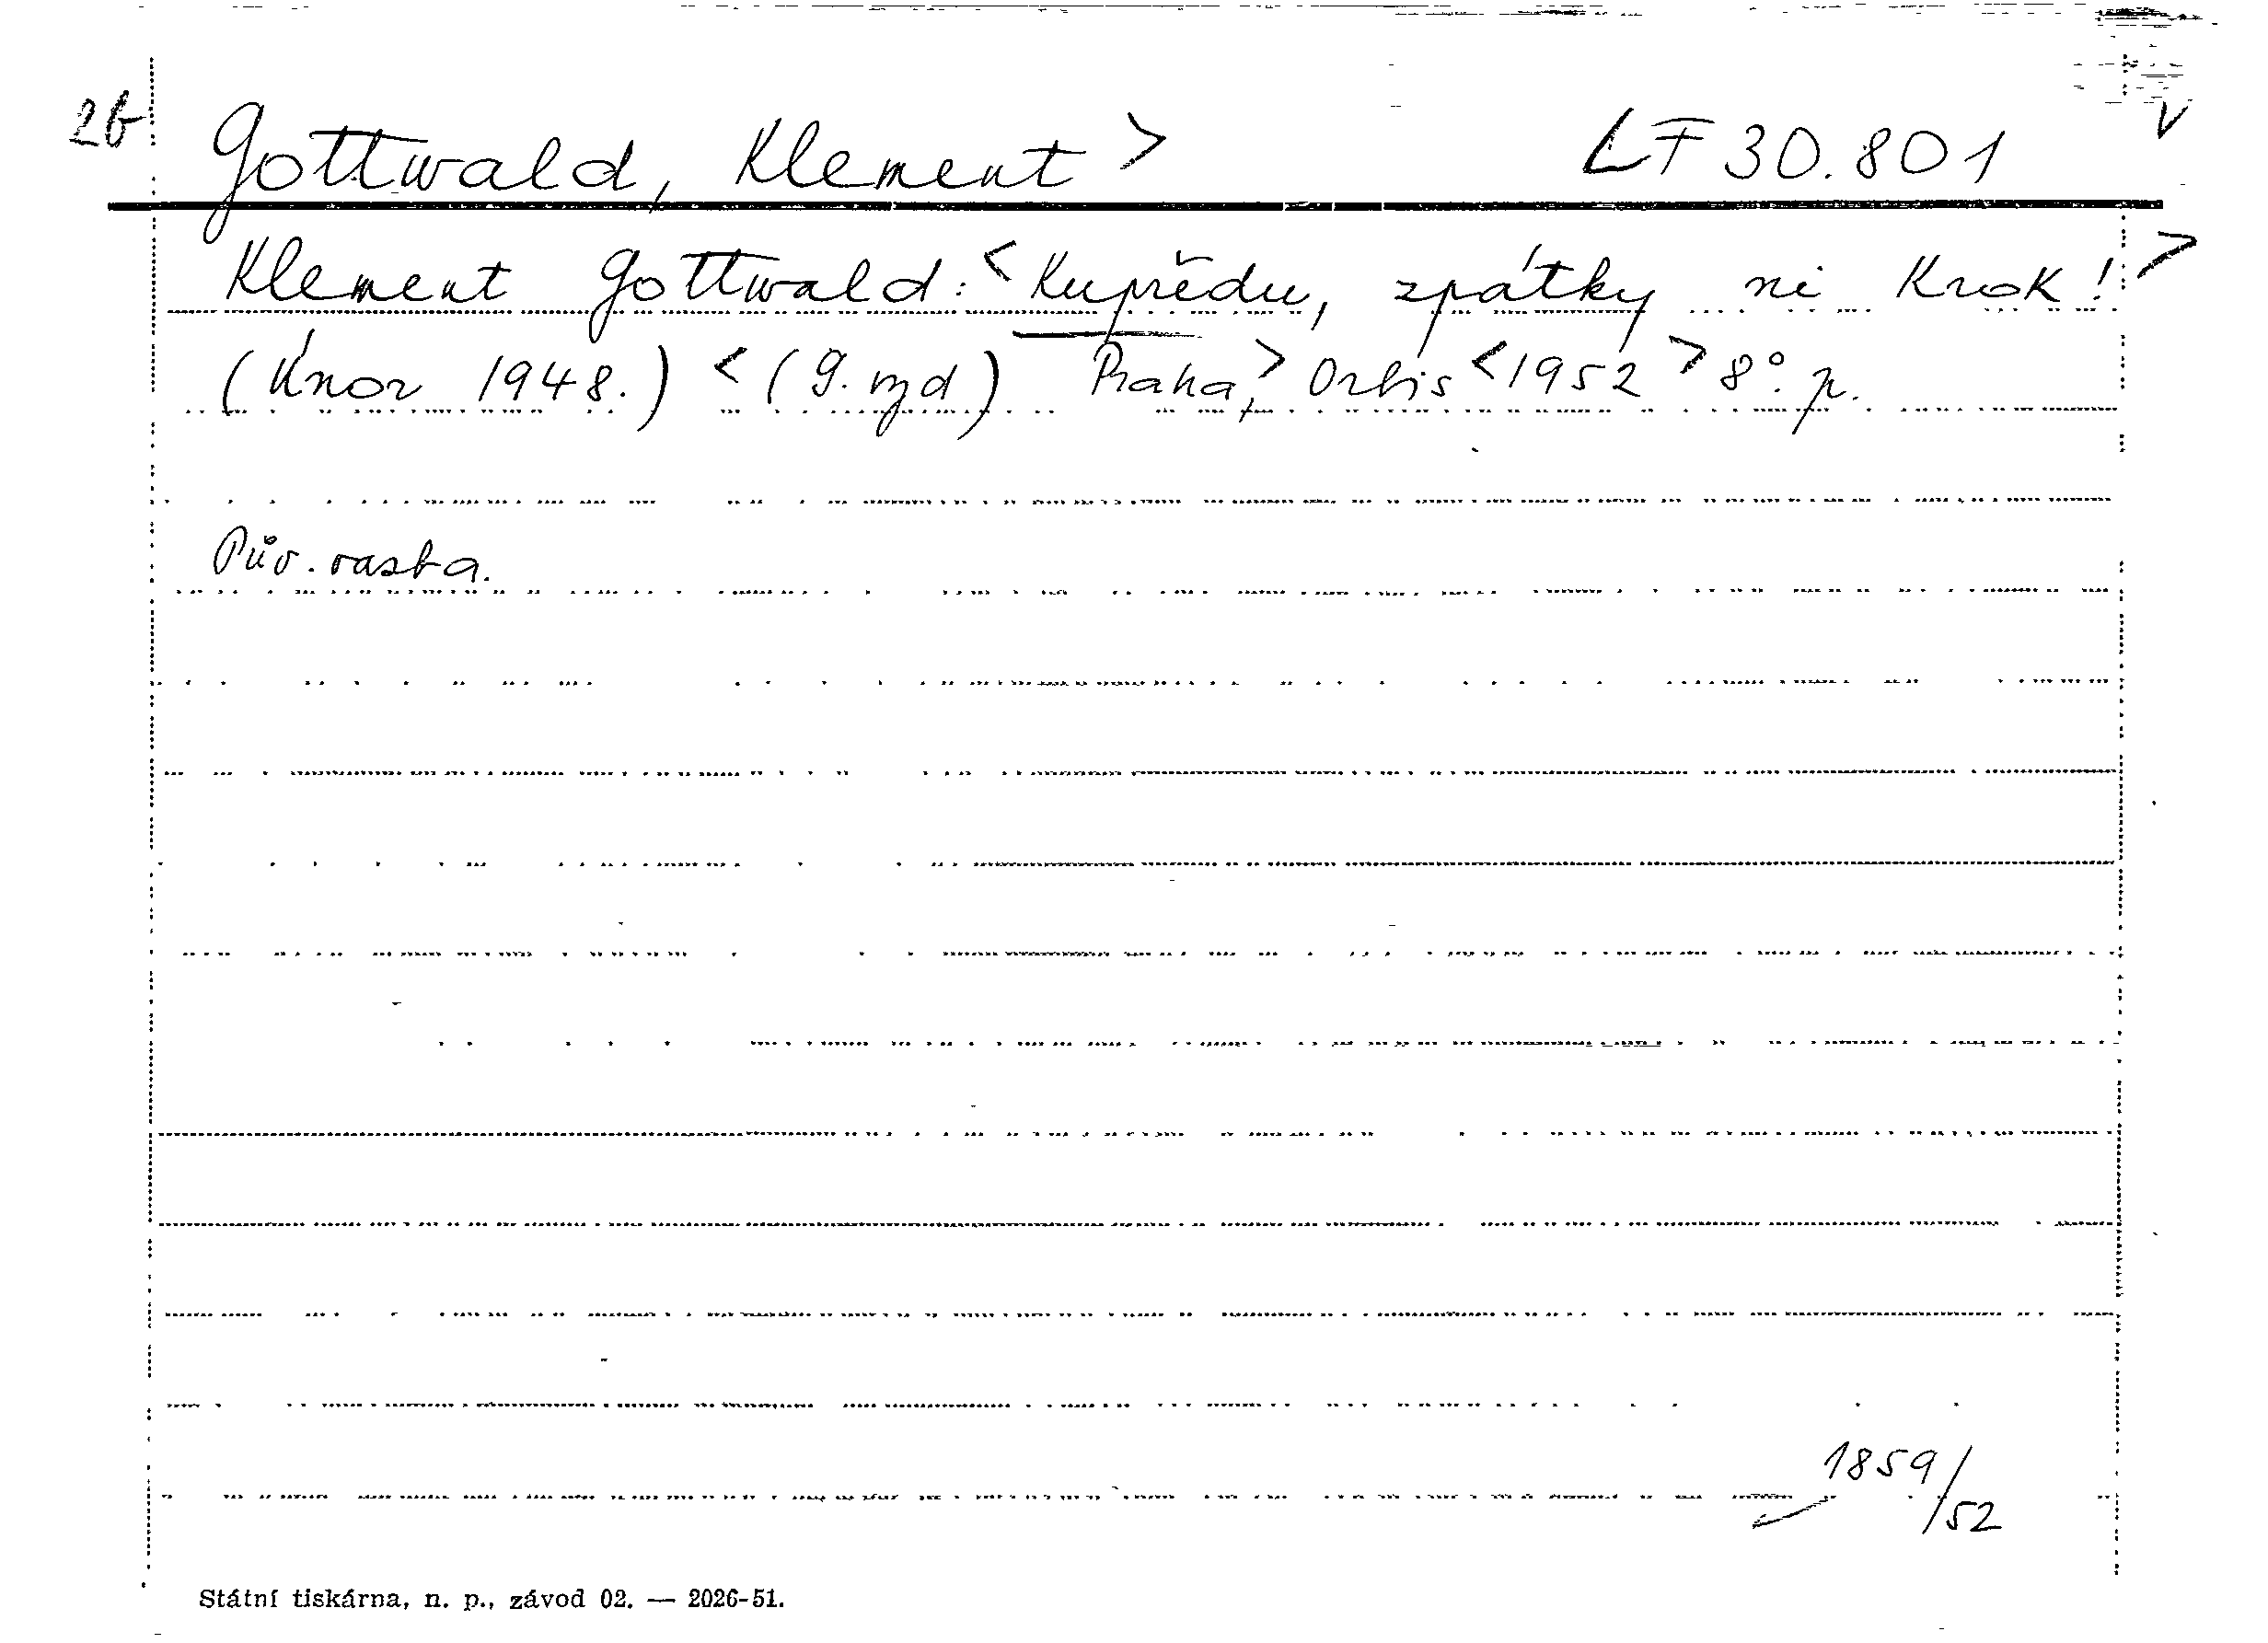 2b Gottwald, Klement > LF 30.801 V
Klement Gottwald: <Kupředu, zpátky ni krok!>
(Únor 1948.) < (9. vyd) Praha,> Orbis <1952 > 8°. p.
Pův. vazba.
1859/52
Státní tiskárna, n. p., závod 02. — 2026-51.